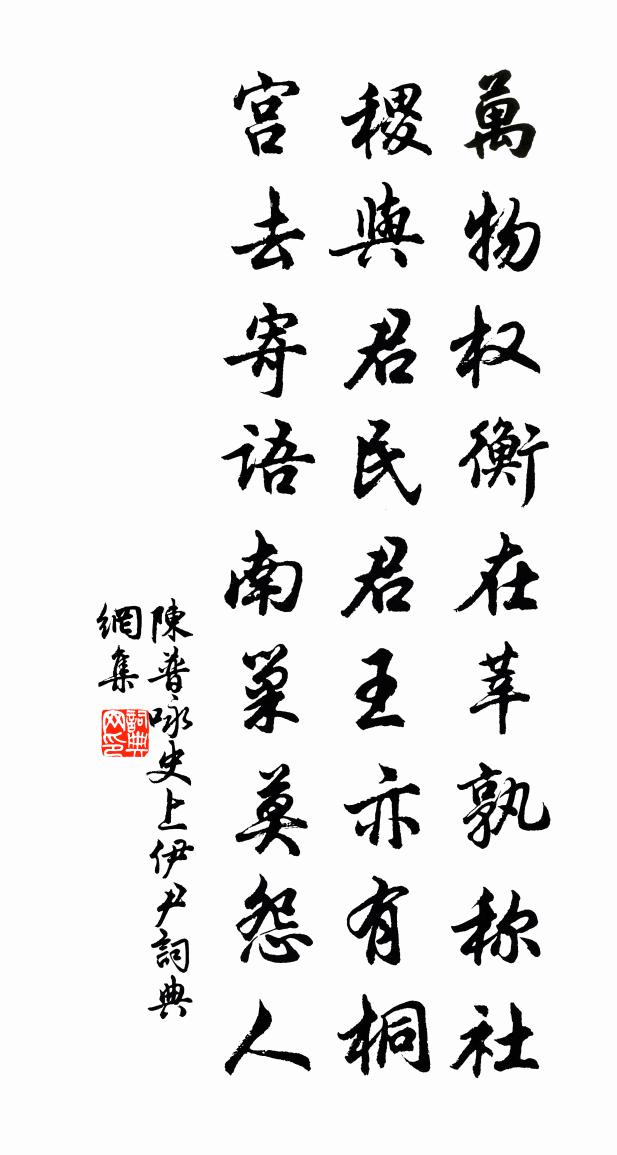 萬物权衡在莘孰称社
稷與君民君王亦有桐
宫去寄语南巢莫怨人
陳普咏史上伊尹詞典
網集
詞典
网印